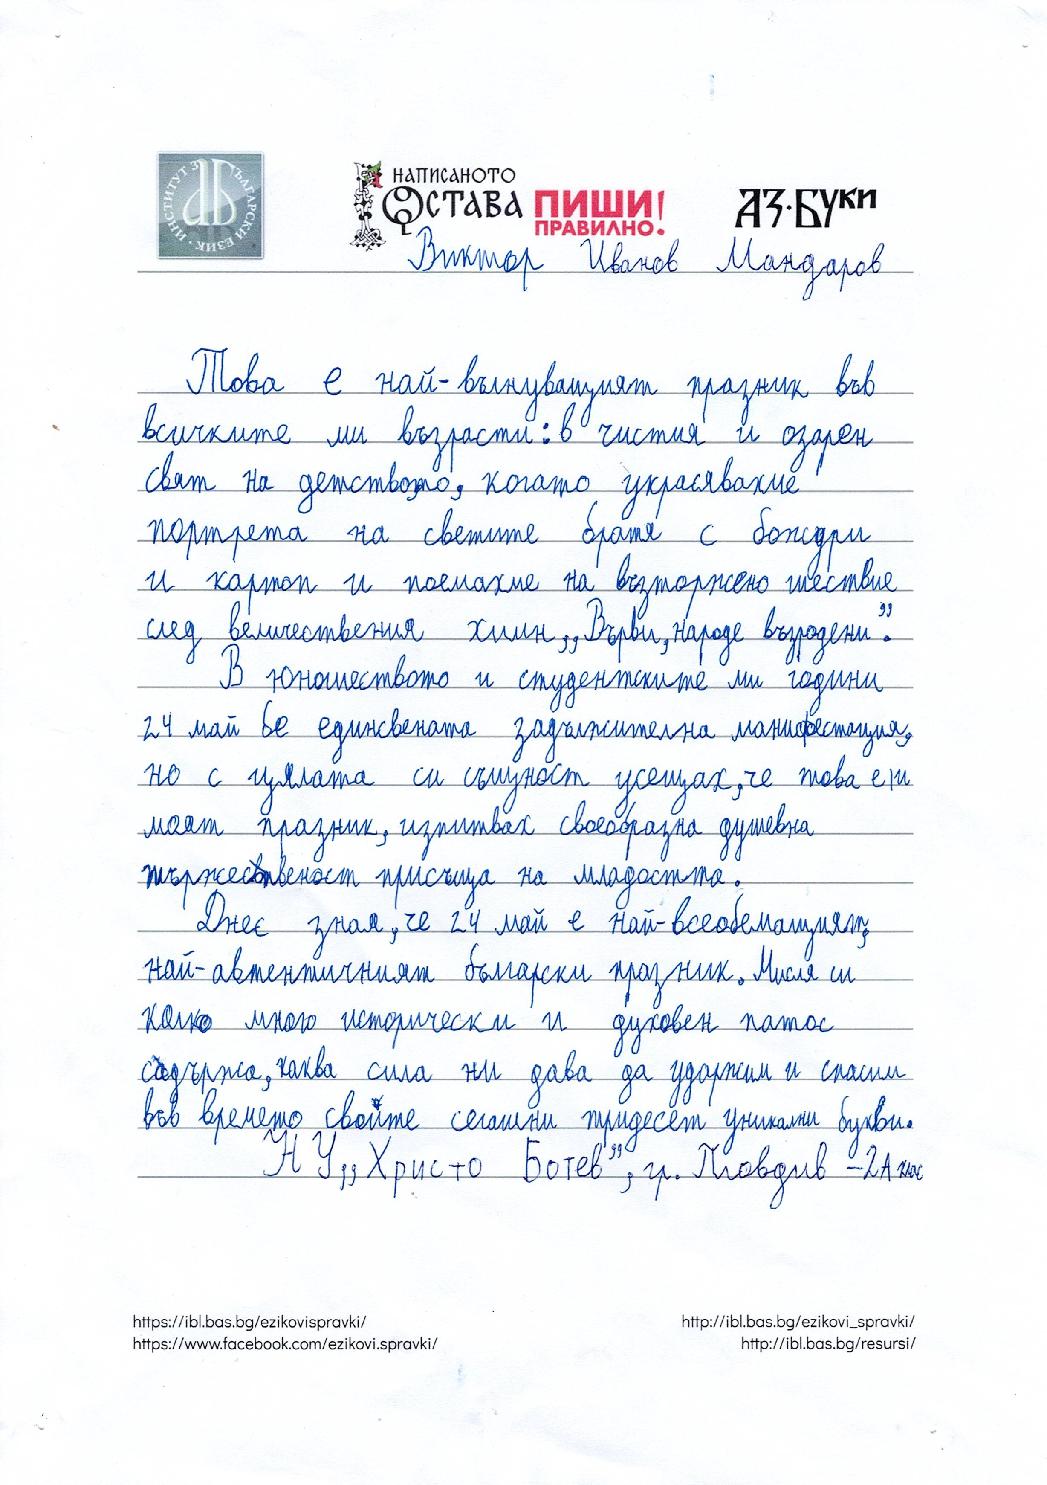 ИНСТИТУТ ЗА БЪЛГАРСКИ ЕЗИК
НАПИСАНОТО
ОСТАВА ПИШИ!
ПРАВИЛНО.
АЗ·БУКИ
Виктор Иванов Мандаров
Това е най-вълнуващият празник във
всичките ми възрасти: в чистия и озарен
свят на детството, когато украсявахме
портрета на светите братя с божури
и картон и поемахме на възторжено шествие
след величествения химн „Върви, народе възродени".
В юношеството и студентските ми години
24 май бе единсвената задължителна манифестация,
но с цялата си същност усещах, че това е и
моят празник, изпитвах своеобразна душевна
тържественост присъща на младостта.
Днес зная, че 24 май е най-всеобемащият,
най-автентичният български празник. Мисля си
колко много исторически и духовен патос
съдържа, каква сила ни дава да удържим и спасим
във времето своите сегашни тридесет уникални букви.
НУ „Христо Ботев", гр. Пловдив - 2А клас
https://ibl.bas.bg/ezikovispravki/ http://ibl.bas.bg/ezikovi_spravki/
https://www.facebook.com/ezikovi.spravki/ http://ibl.bas.bg/resursi/